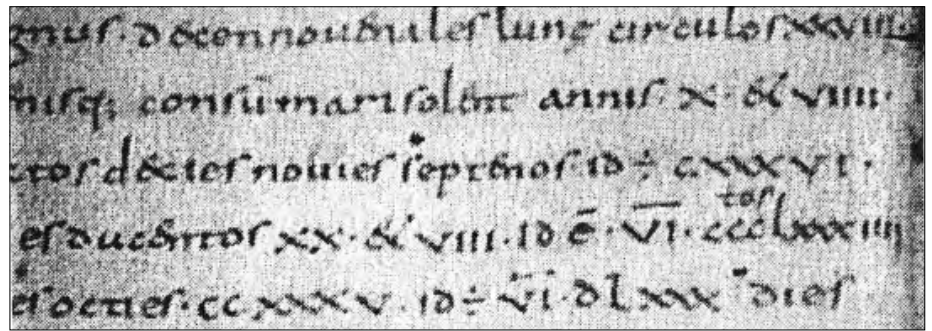 gnus· decennouenales lunę circulos xxviiii
nisq; consūmari solent annis· x· & viiii·
ctos decies nouies septenos· id ÷ cxxxvi·
es ducentos xx· & viii· id ē· v̅i̅· ccctoslxxxiiii
es octies· cc xxxv· id ÷ v̅i̅· dlxxx dies